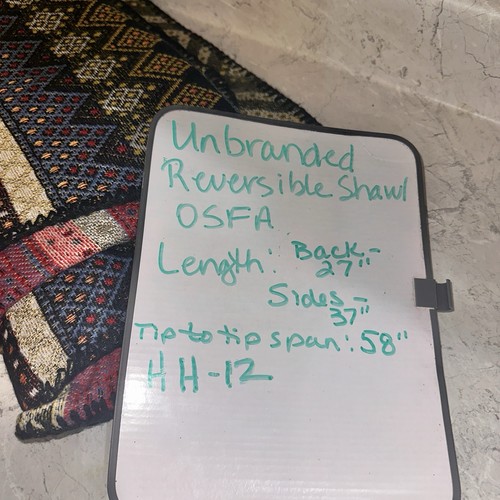 Unbranded
Reversible Shawl
OSFA
Length: Back-
27"
Sides-
37"
Tip to tip span: 58"
HH-12